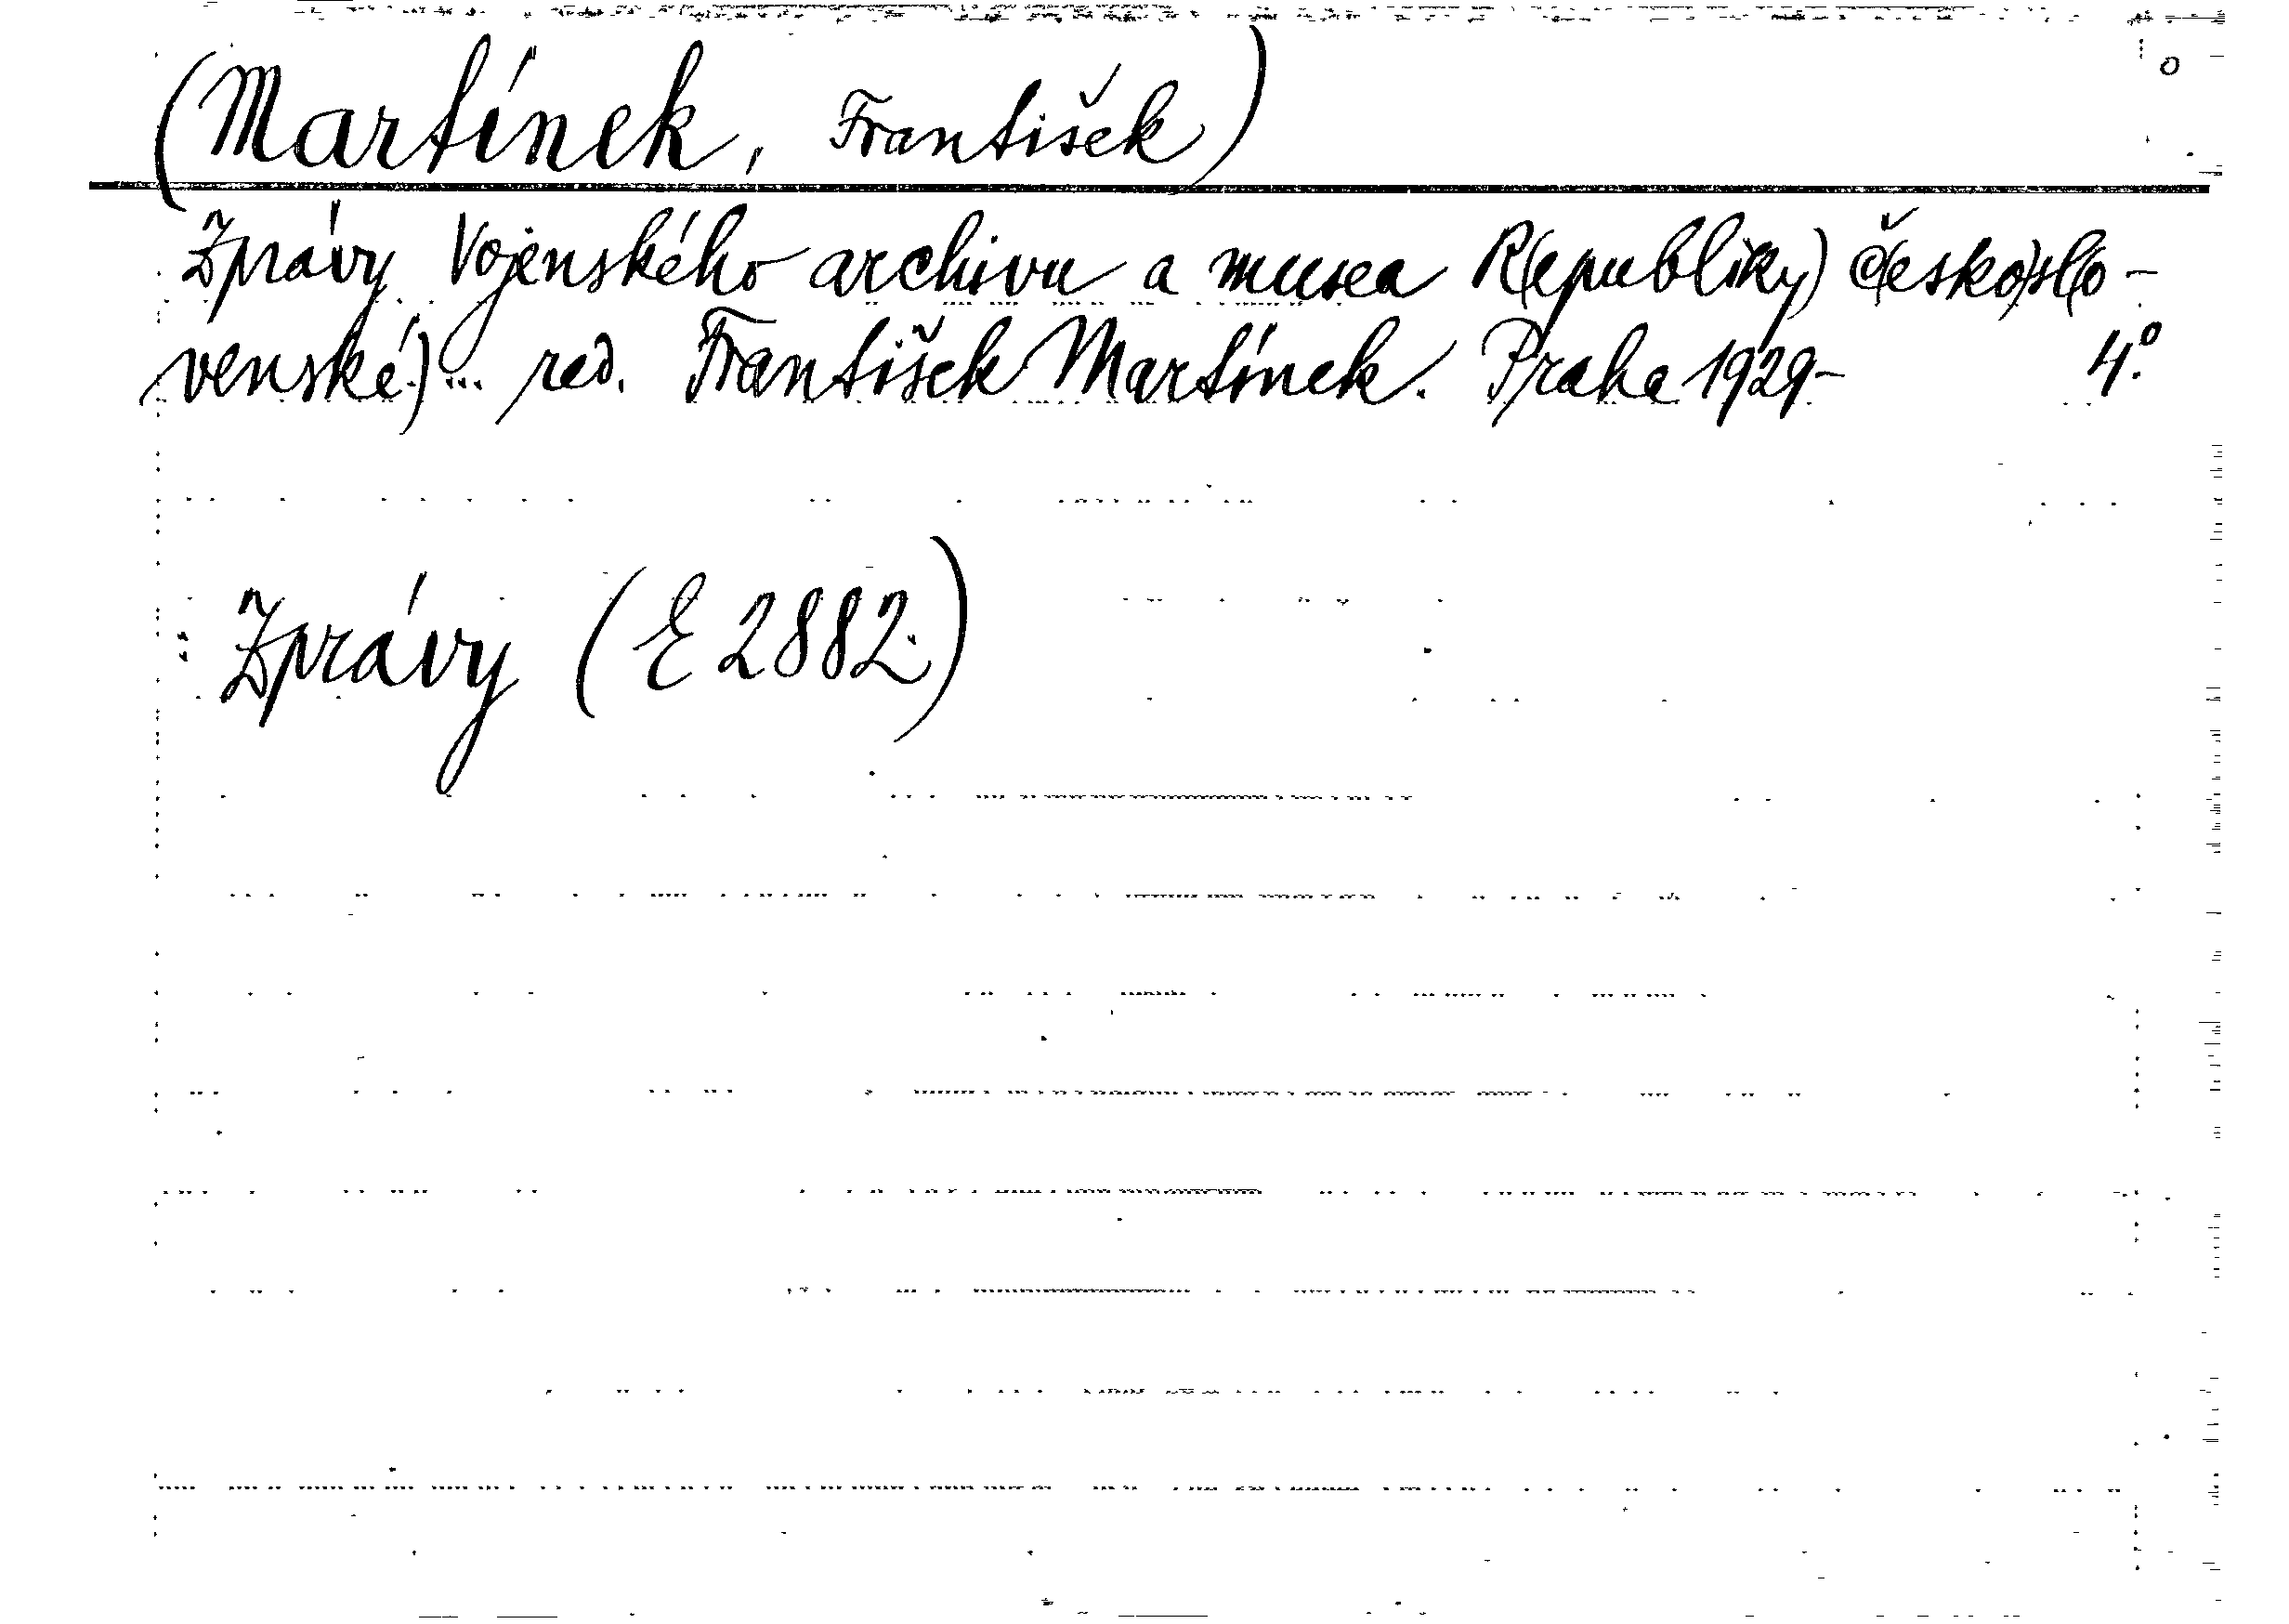 (Martínek, František)
Zprávy Vojenského archivu a musea R(epubliky) č(esko)slo-
venské)... red. František Martínek. Praha 1929- 4.°
: Zprávy (E 2882.)